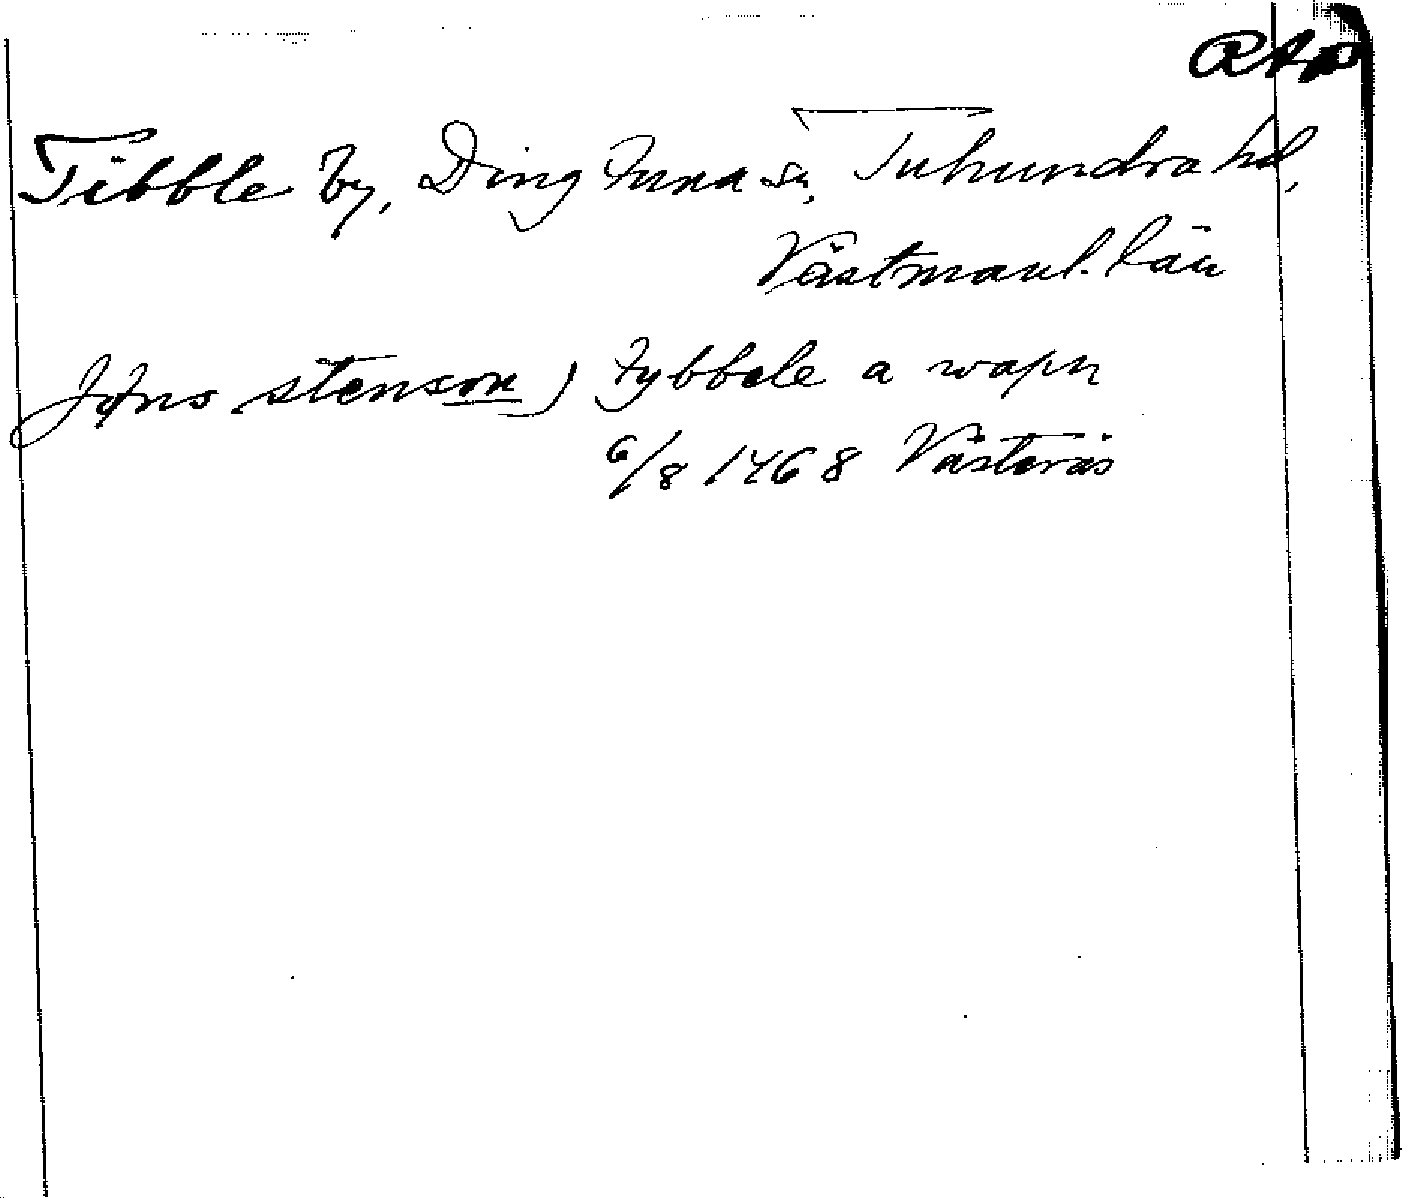 RAp
Tibble by, Dingtuna sn, Tuhundra hd,
Västmanl. län
Jøns stenson j tybbele a wapn
6/8 1468 Västerås